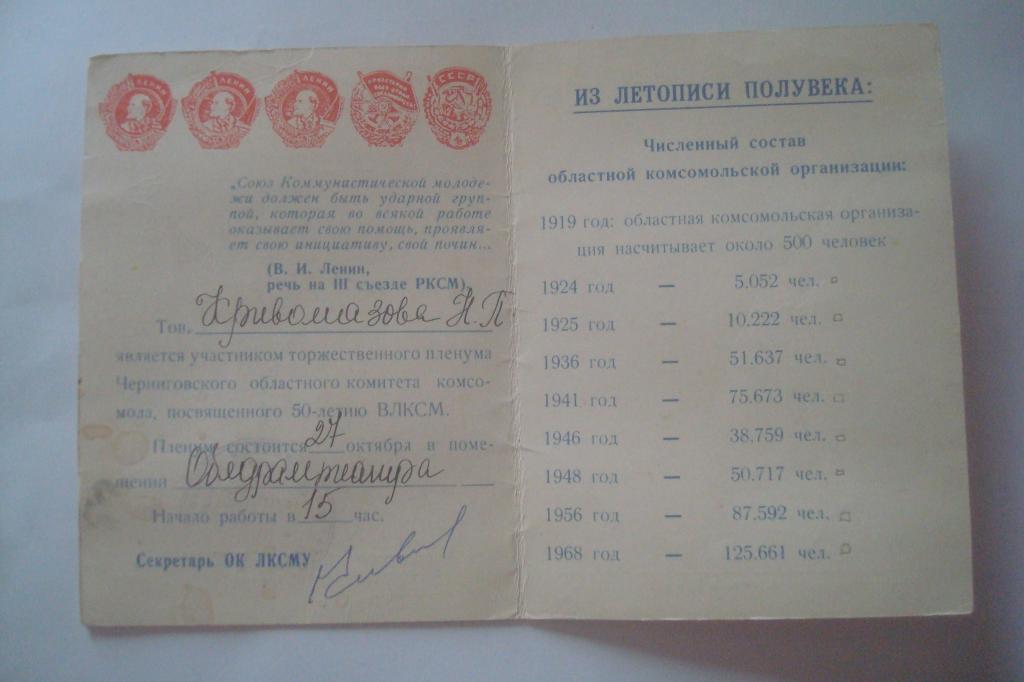 ЛЕНИН
ЛЕНИН
ЛЕНИН
СССР
„Союз Коммунистической молоде-
жи должен быть ударной груп-
пой, которая во всякой работе
оказывает свою помощь, проявля-
ет свою инициативу, свой почин...
(В. И. Ленин,
речь на III съезде РКСМ)
Тов. Кривомазова Н.П
является участником торжественного пленума
Черниговского областного комитета комсо-
мола, посвященного 50-летию ВЛКСМ.
Пленум состоится 27 октября в поме-
щении Облдрамтеатра
Начало работы в 15 час.
Секретарь ОК ЛКСМУ
ИЗ ЛЕТОПИСИ ПОЛУВЕКА:
Численный состав
областной комсомольской организации:
1919 год: областная комсомольская организа-
ция насчитывает около 500 человек
1924 год — 5.052 чел.
1925 год — 10.222 чел.
1936 год — 51.637 чел.
1941 год — 75.673 чел.
1946 год — 38.759 чел.
1948 год — 50.717 чел.
1956 год — 87.592 чел.
1968 год — 125.661 чел.